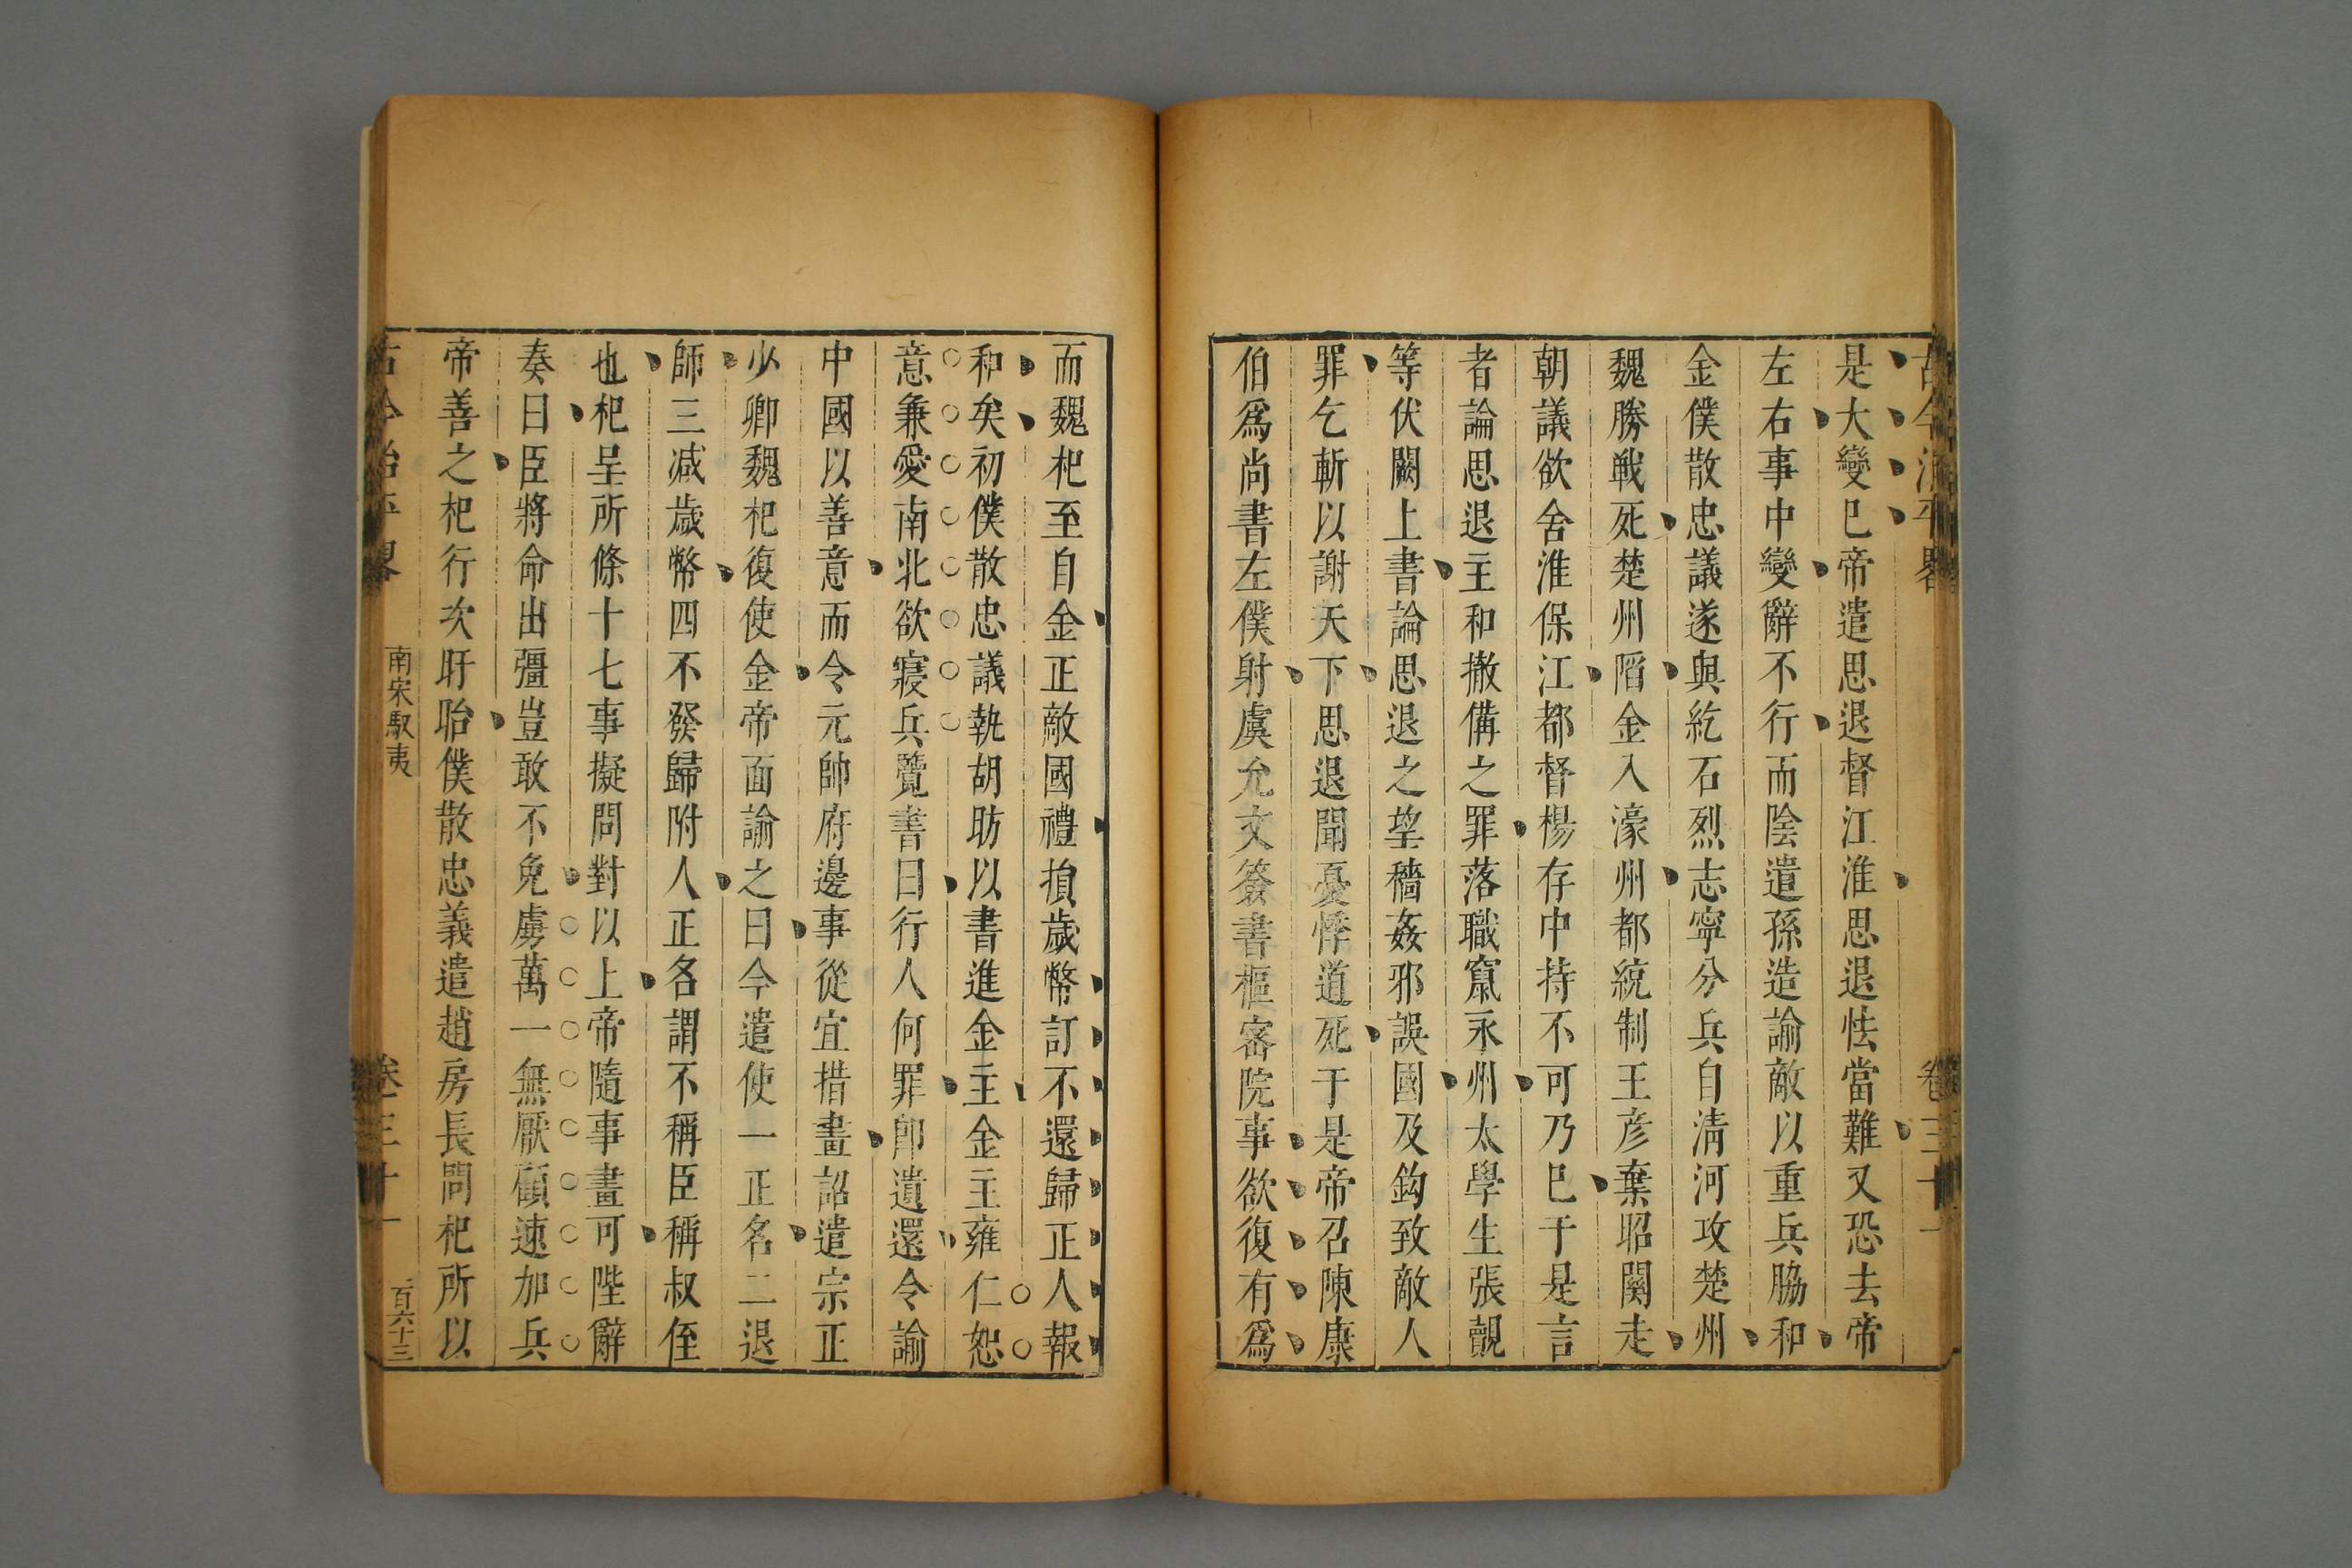 古今治平畧
卷三十一
是大變已帝遣思退督江淮思退怯當難又恐去帝
左右事中變辭不行而陰遣孫造諭敵以重兵脇和
金僕散忠議遂與紇石烈志寧分兵自清河攻楚州
魏勝戦死楚州陷金入濠州都統制王彦棄昭關走
朝議欲舍淮保江都督楊存中持不可乃已于是言
者論思退主和撤備之罪落職竄永州太學生張觀
等伏闕上書論思退之望穡姦邪誤國及鈎致敵人
罪乞斬以謝天下思退聞憂悸道死于是帝召陳康
伯爲尚書左僕射虞允文簽書樞密院事欲復有爲
而魏杞至自金正敵國禮損歲幣訂不還歸正人報
和矣初僕散忠議執胡昉以書進金主金主雍仁恕
意兼愛南北欲寢兵覽書曰行人何罪卽遣還令諭
中國以善意而令元帥府邊事從宜措畫詔遣宗正
少卿魏杞復使金帝面諭之曰今遣使一正名二退
師三减歲幣四不發歸附人正各謂不稱臣稱叔侄
也杞呈所條十七事擬問對以上帝隨事畫可陛辭
奏曰臣將命出彊豈敢不免虜萬一無厭願速加兵
帝善之杞行次盱眙僕散忠義遣趙房長問杞所以
古今治平畧
南宋馭夷
卷三十一
百六十三